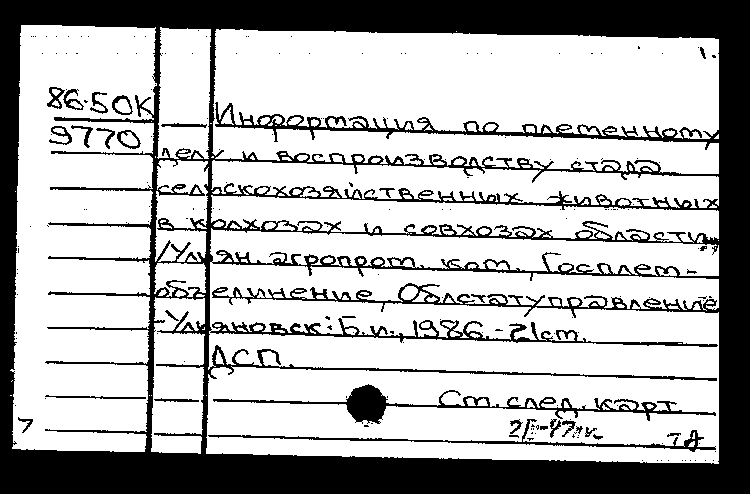 1.
86-50К
9770
Информация по племенному
делу и воспроизводству стада
сельскохозяйственных животных
в колхозах и совхозах области
/Ульян. агропром. ком., Госплем-
объединение, Облстатуправление
-Ульяновск: Б.и., 1986.-21см.
ДСП.
Ст. след. карт.
7